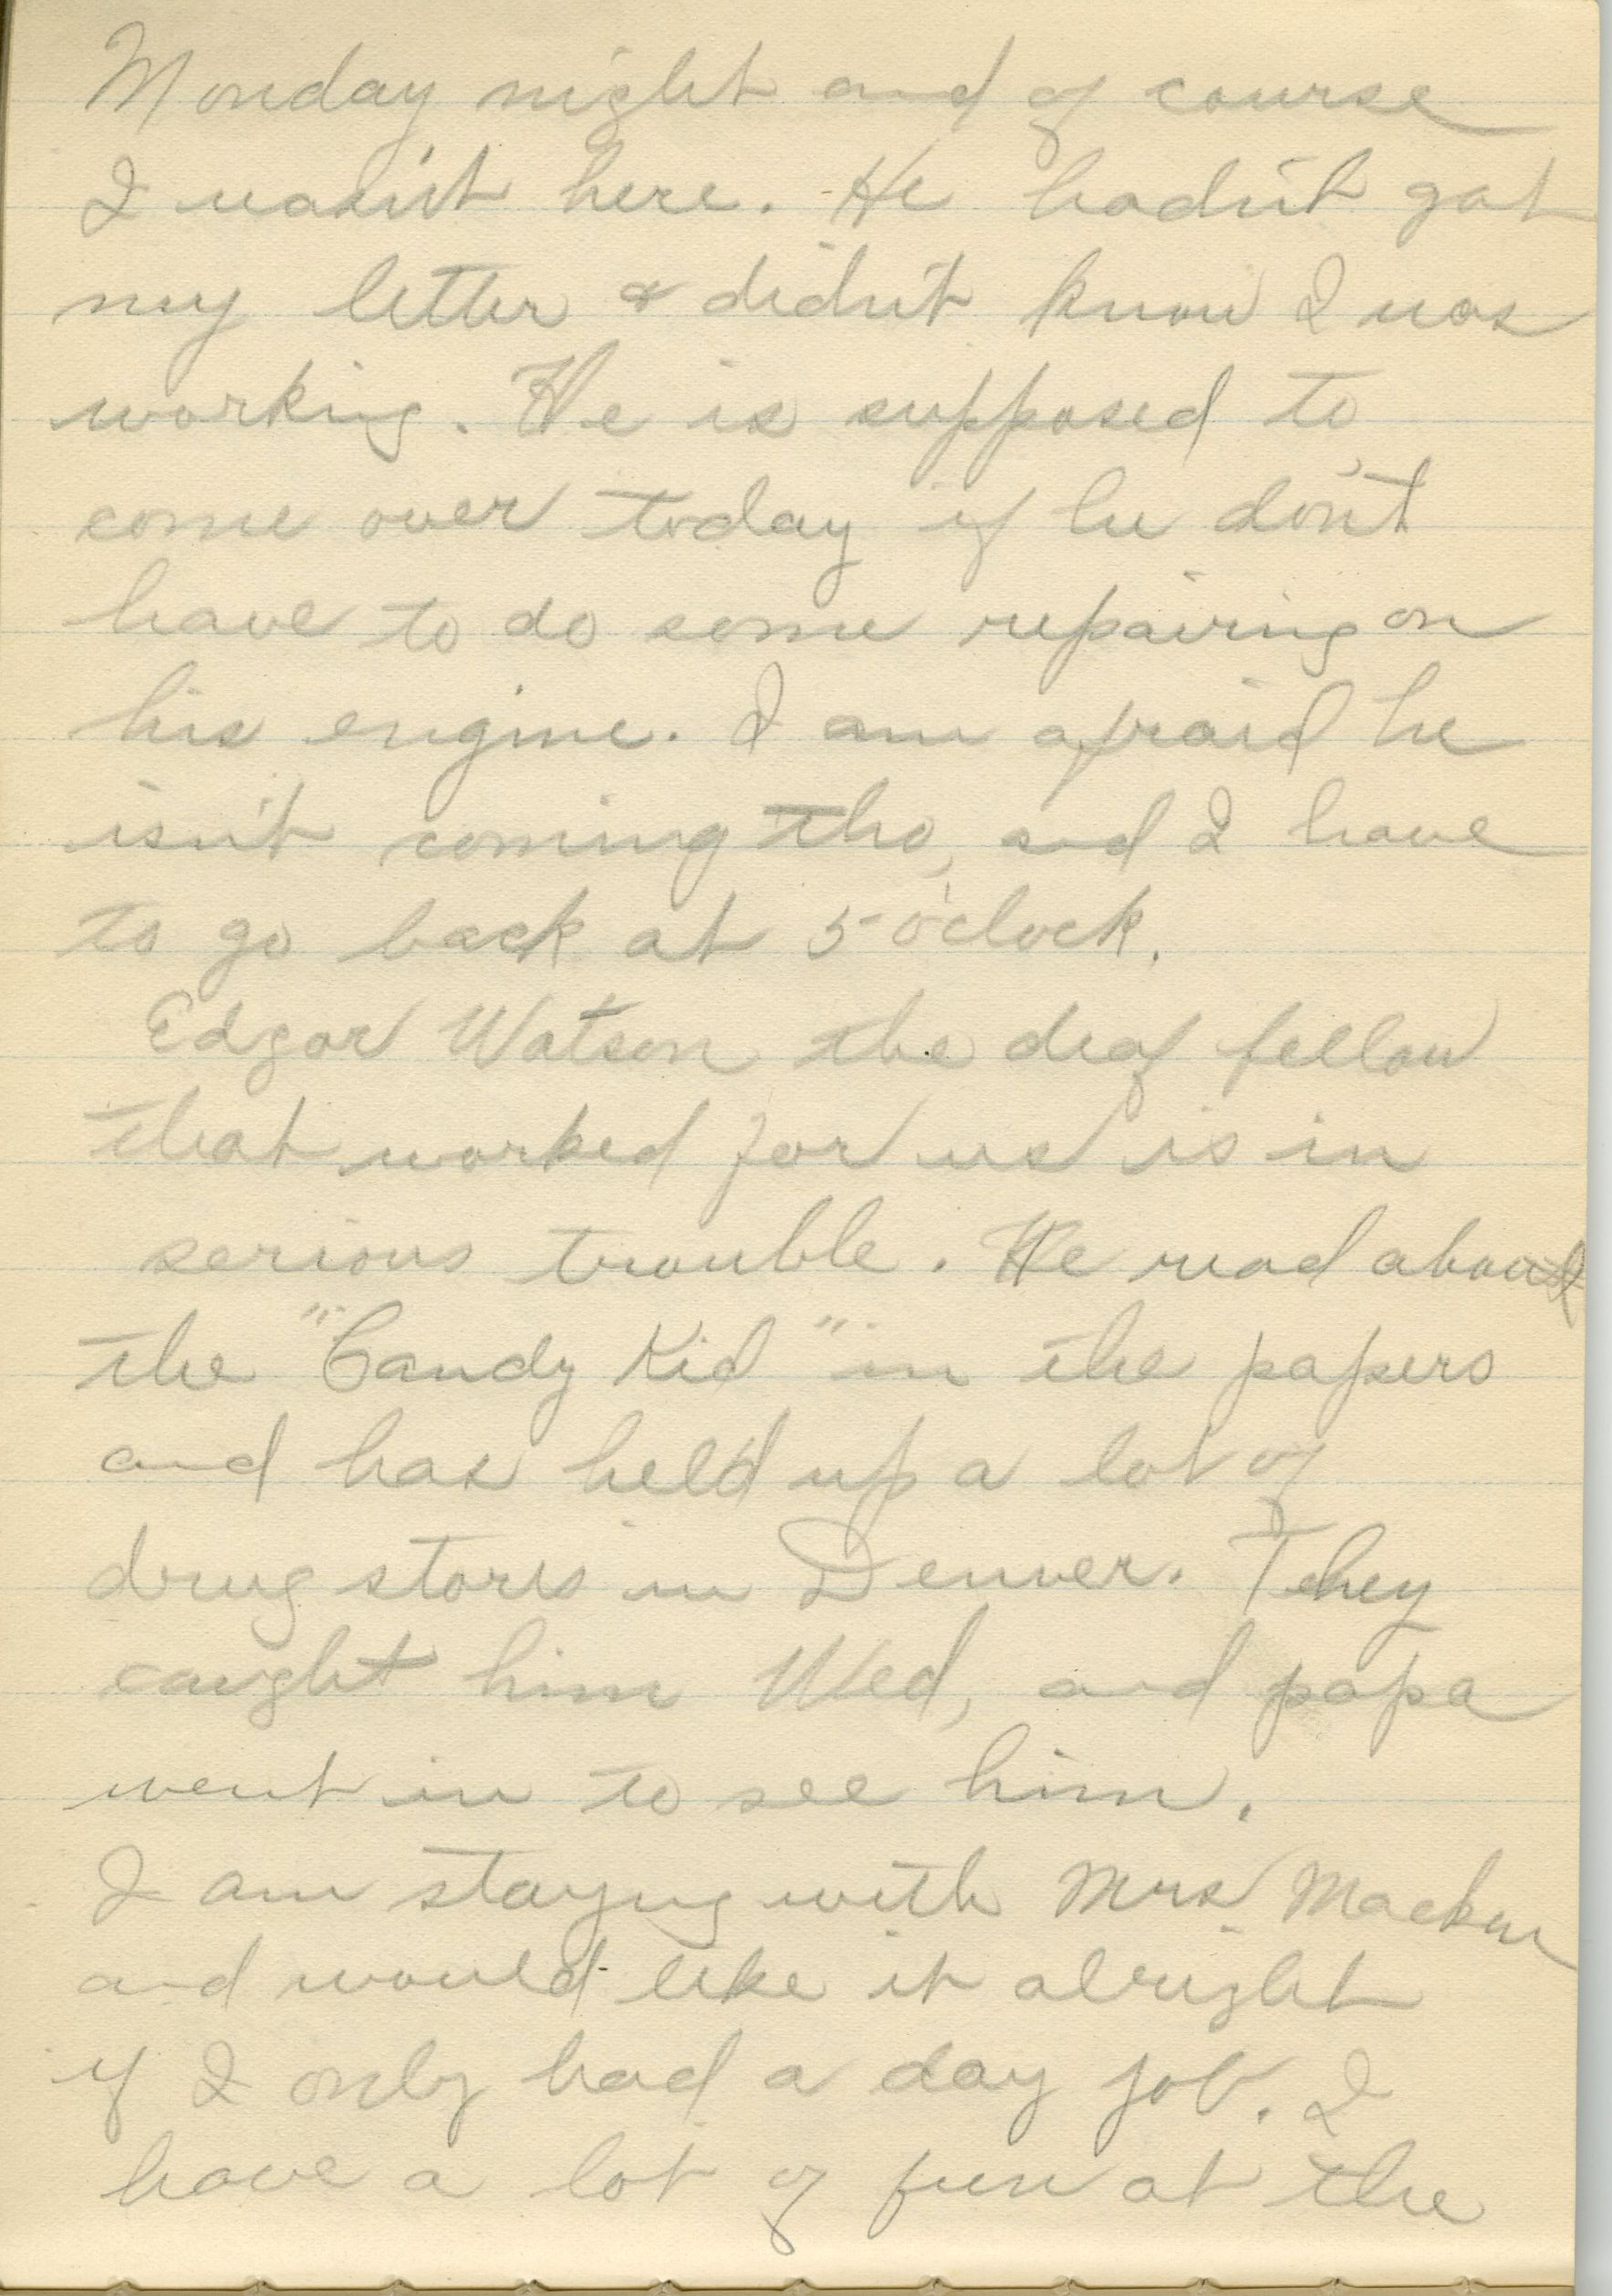 Monday night and of course
I wasn't here. He hadn't got
my letter & didn't know I was
working. He is supposed to
come over today if he don't
have to do some repairing on
his engine. I am afraid he
isn't coming tho, and I have
to go back at 5 o'clock.
Edgar Watson the deaf fellow
that worked for us is in
serious trouble. He read about
the "Candy Kid" in the papers
and has held up a lot of
drug stores in Denver. They
caught him Wed, and papa
went in to see him.
I am staying with Mrs
and would like it alright
if I only had a day job. I
have a lot of fun at the